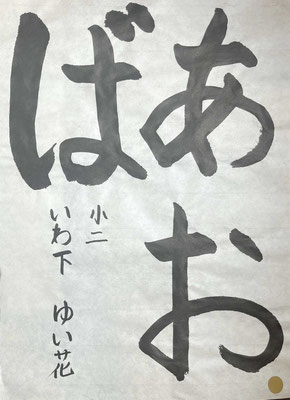 あお
ば
小二
いわ下 ゆい花